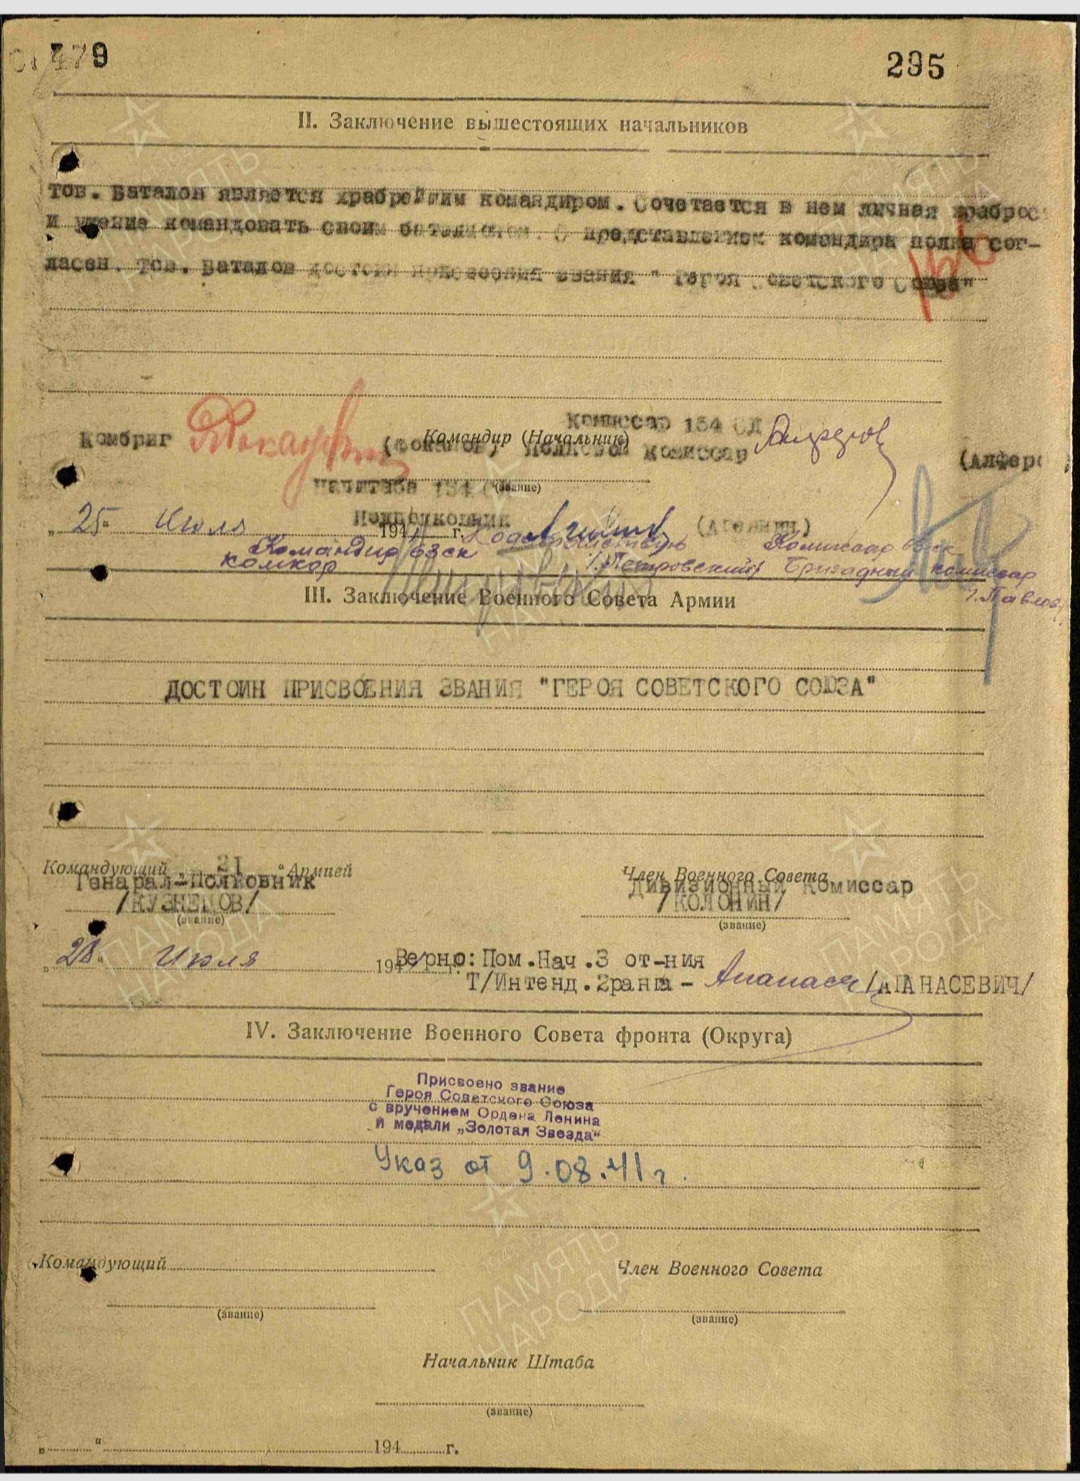 479
295
II. Заключение вышестоящих начальников
Тов. Баталов является храбрейшим командиром. Сочетается в нем личная храброс
и умение командовать своим батальоном. С представлением командира полка сог-
ласен. тов. Баталов достоин присвоения звания " Героя Советского Союза"
Комиссар 154 СД
Комбриг (Фоканов) Командир (Начальник) Полковой комиссар (Алферо
Начштаба 154 СД (звание)
Подполковник
„ 25 " Июля 1941 г. (Агеенин)
Командир 63 ск Комиссар 63 ск
комкор /Петровский/ Бригадный комиссар
/Павлов/
III. Заключение Военного Совета Армии
ДОСТОИН ПРИСВОЕНИЯ ЗВАНИЯ "ГЕРОЯ СОВЕТСКОГО СОЮЗА"
Командующий 21 Армией Член Военного Совета
Генерал-Полковник Дивизионный Комиссар
/КУЗНЕЦОВ/ /КОЛОНИН/
(звание) (звание)
„ 28 " Июля 1941 г. Верно: Пом.Нач.3 от-ния
Т/Интенд.2ранга - /АПАНАСЕВИЧ/
IV. Заключение Военного Совета фронта (Округа)
Присвоено звание
Героя Советского Союза
с вручением Ордена Ленина
и медали „Золотая Звезда"
Указ от 9.08.41г.
Командующий Член Военного Совета
(звание) (звание)
Начальник Штаба
(звание)
„ " 194 г.
ПАМЯТЬ НАРОДА